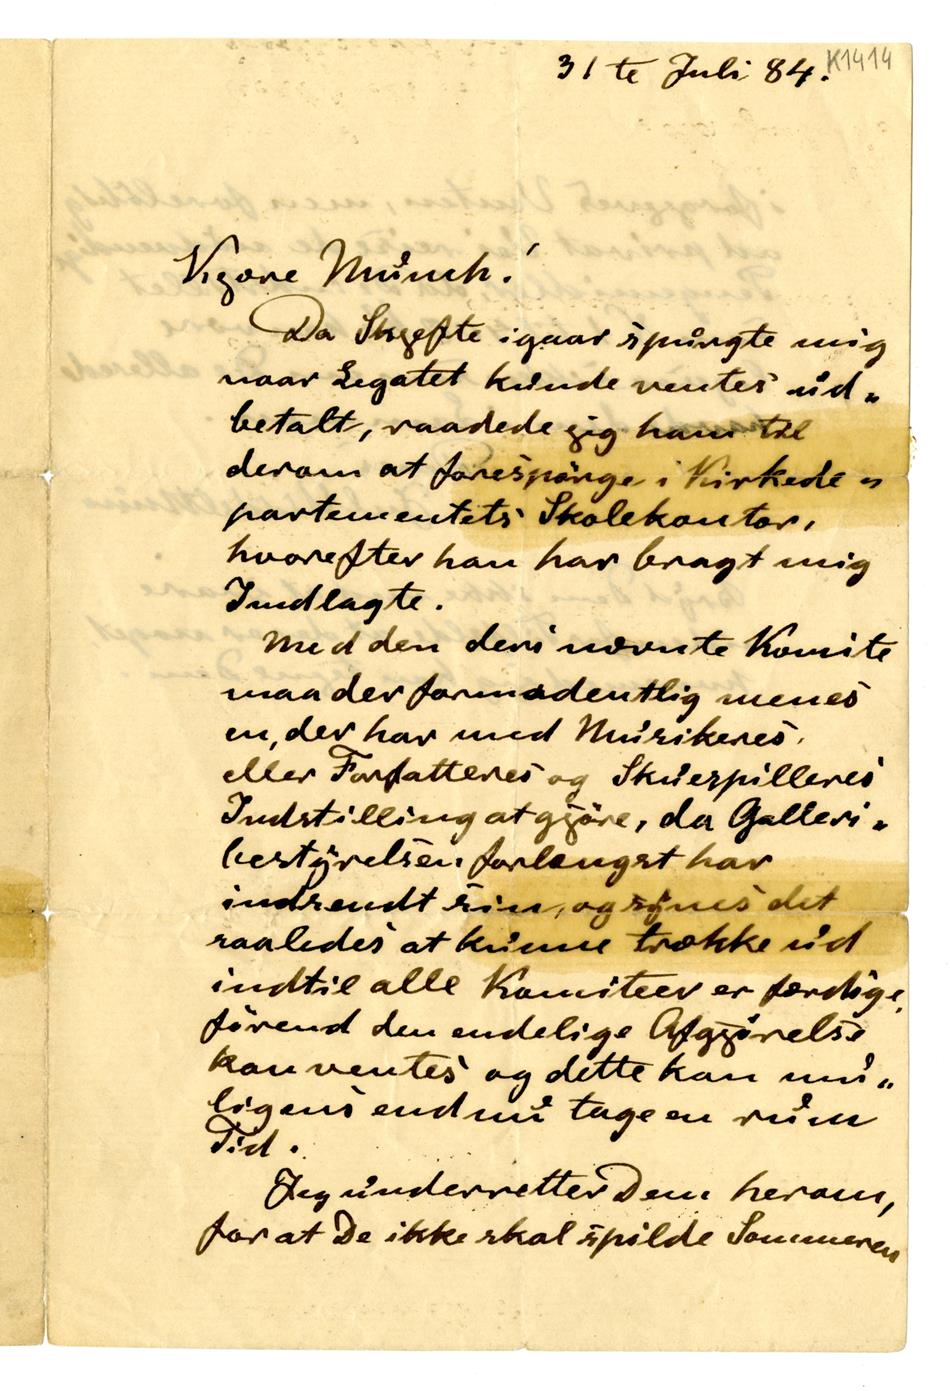 31te Juli 84.
K1414
Kjære Munch!
Da Skeefte igaar spurgte mig
naar Legatet kunde ventes ud„
betalt, raadede jeg ham til
derom at forespørge i Kirkede„
partementets Skolekontor,
hvorefter han har bragt mig
Indlagte.
Med den deri nævnte Komite
maa der formodentlig menes
en, der har med Musikeres
eller Forfatteres og Skuespilleres
Indstilling at gjøre, da Galleri„
bestyrelsen forlængst har
indsendt sin, og synes det
saaledes at kunne trække ud
indtil alle Komiteer er færdige,
førend den endelige Afgjørelse
kan ventes og dette kan mu„
ligens endnu tage en rum
Tid.
Jeg underretter Dem herom,
for at De ikke skal spilde Sommeren